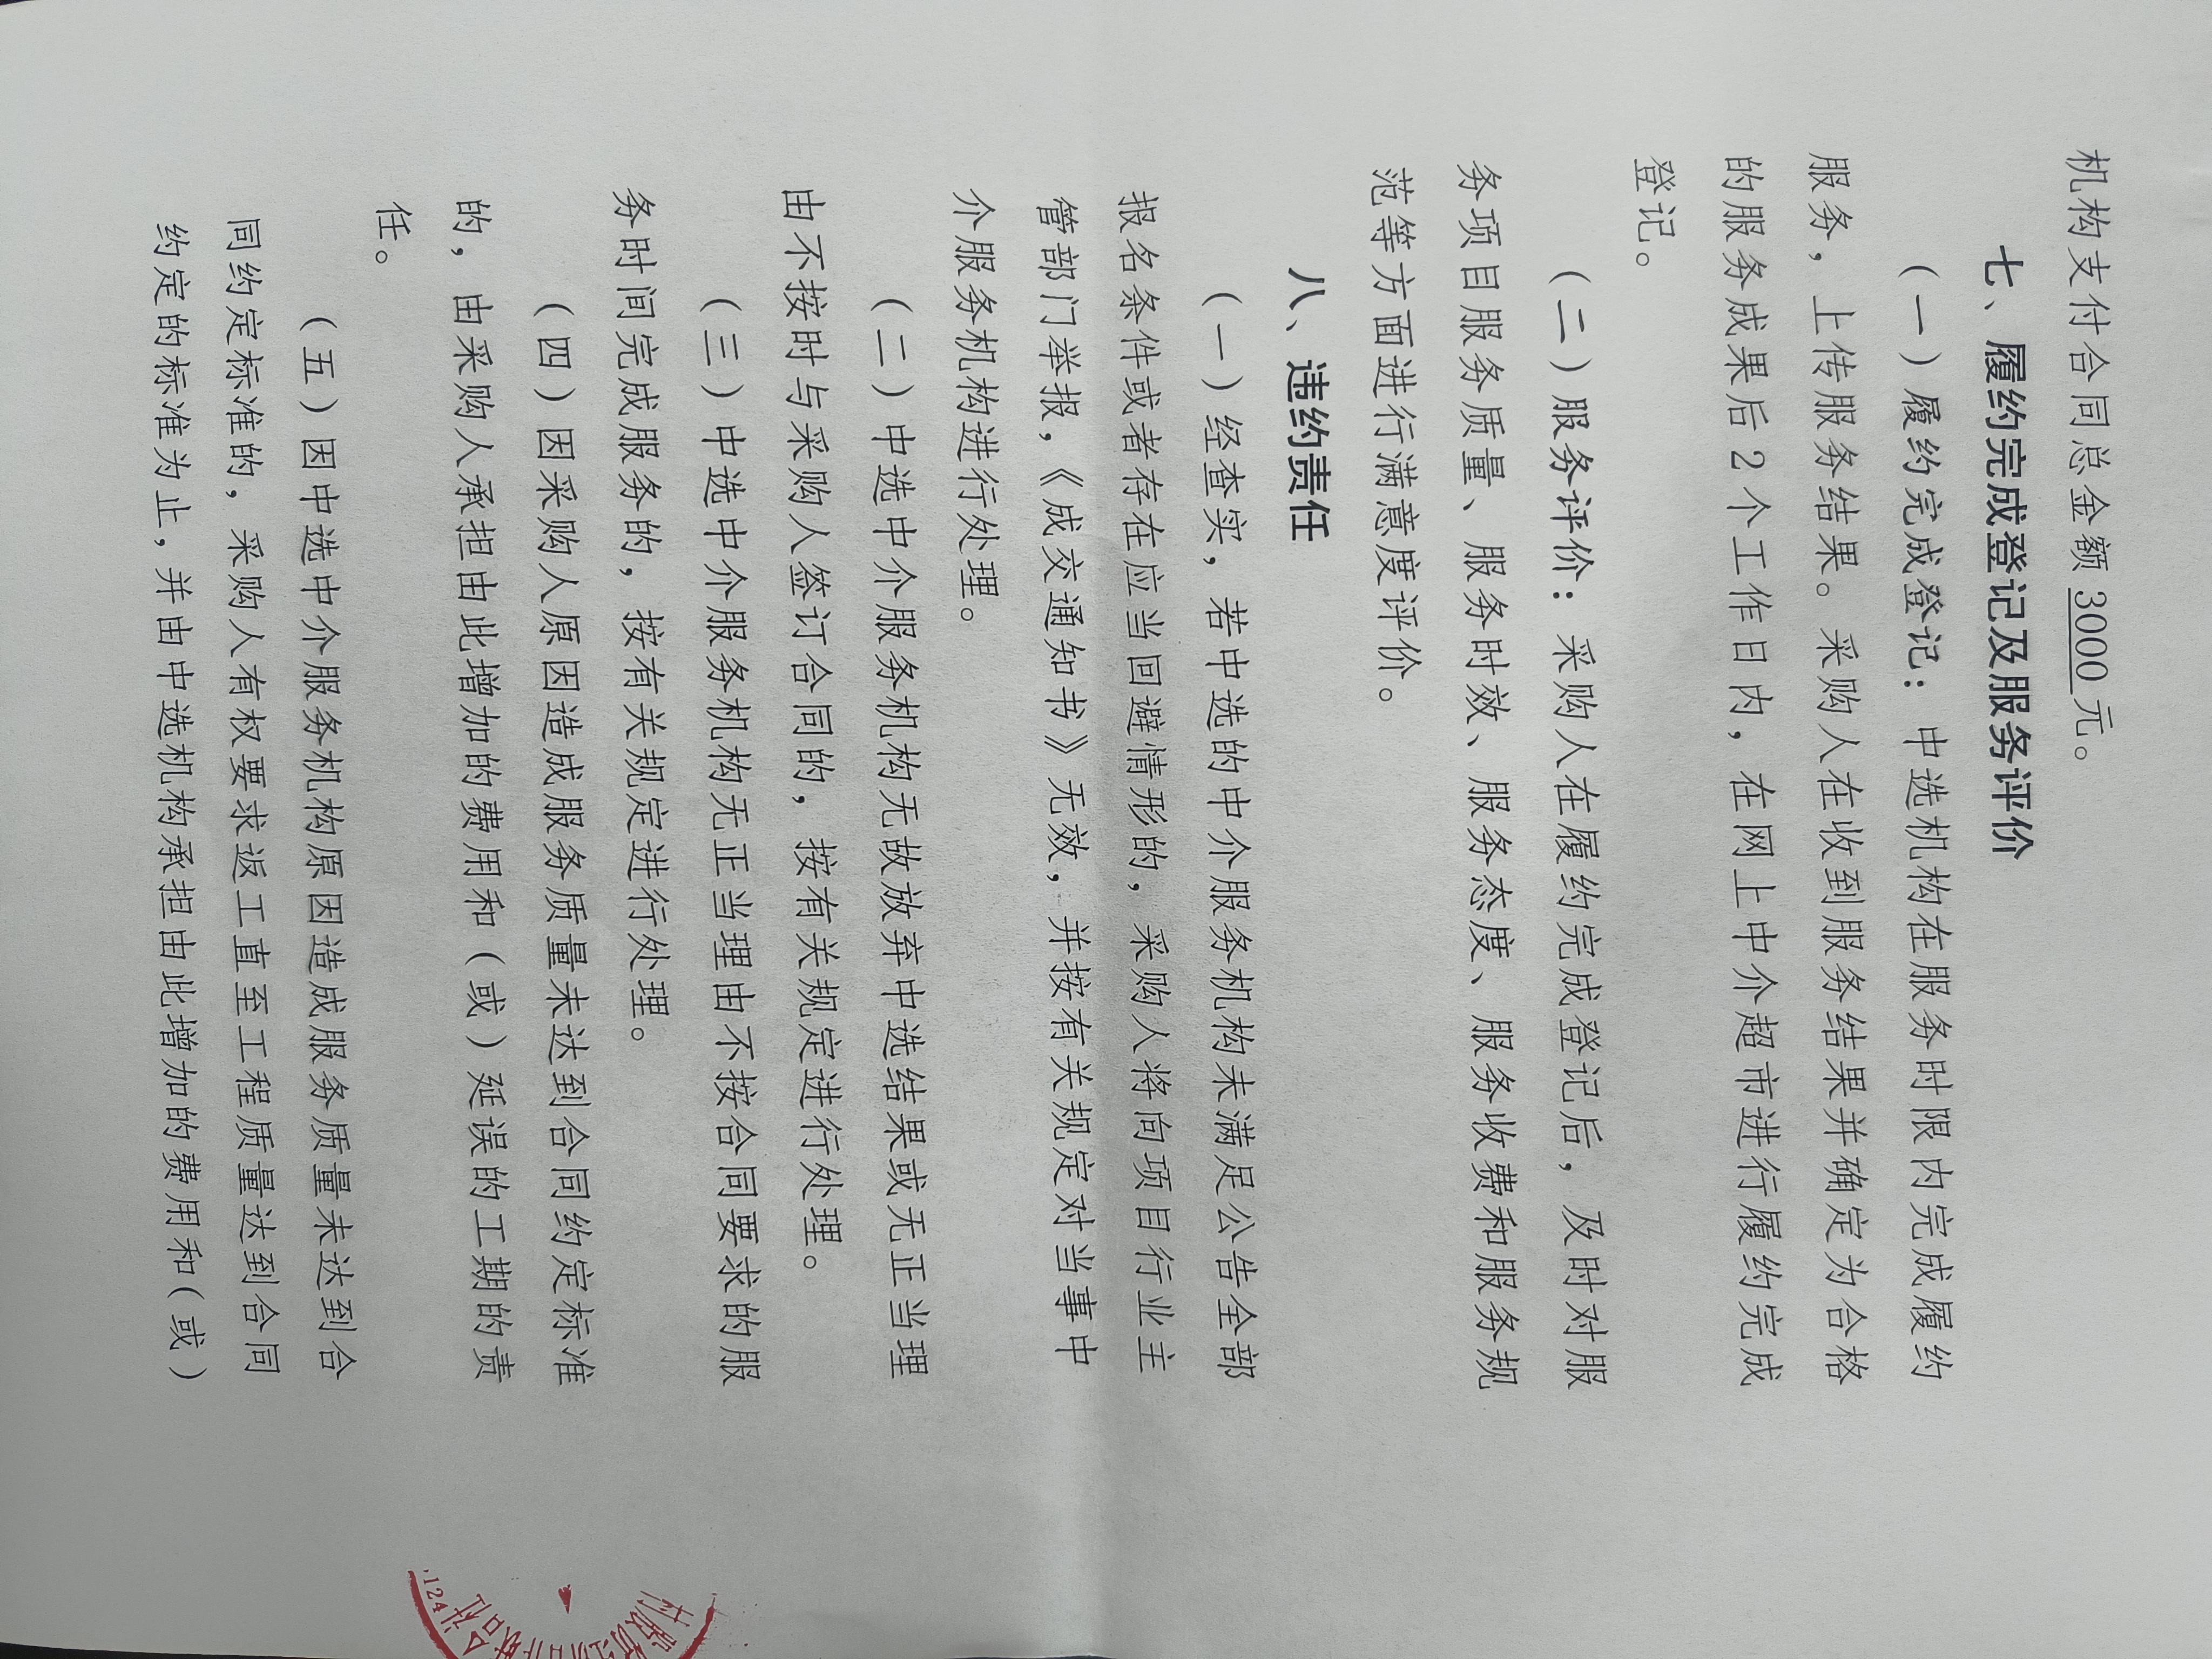 机构支付合同总金额 3000 元。
七、履约完成登记及服务评价
（一）履约完成登记：中选机构在服务时限内完成履约
服务，上传服务结果。采购人在收到服务结果并确定为合格
的服务成果后 2 个工作日内，在网上中介超市进行履约完成
登记。
（二）服务评价：采购人在履约完成登记后，及时对服
务项目服务质量、服务时效、服务态度、服务收费和服务规
范等方面进行满意度评价。
八、违约责任
（一）经查实，若中选的中介服务机构未满足公告全部
报名条件或者存在应当回避情形的，采购人将向项目行业主
管部门举报，《成交通知书》无效，并按有关规定对当事中
介服务机构进行处理。
（二）中选中介服务机构无故放弃中选结果或无正当理
由不按时与采购人签订合同的，按有关规定进行处理。
（三）中选中介服务机构无正当理由不按合同要求的服
务时间完成服务的，按有关规定进行处理。
（四）因采购人原因造成服务质量未达到合同约定标准
的，由采购人承担由此增加的费用和（或）延误的工期的责
任。
（五）因中选中介服务机构原因造成服务质量未达到合
同约定标准的，采购人有权要求返工直至工程质量达到合同
约定的标准为止，并由中选机构承担由此增加的费用和（或）
村股
合社
124